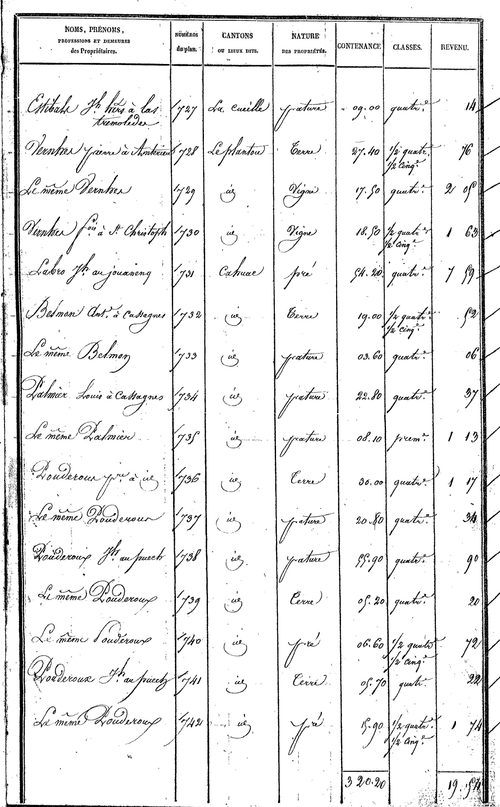 NOMS, PRÉNOMS, PROFESSIONS ET DEMEURES des Propriétaires. NUMÉROS du plan. CANTONS OU LIEUX DITS. NATURE DES PROPRIÉTÉS. CONTENANCE CLASSES. REVENU.
Jh hérs à las 727 La pature 09.00 quatr.e 14
tremoledes
Vernhes pierre à 728 Le plantou Terre 27.40 1/2 quatr.e 76
1/2 cinq.e
Le même Vernhes 729 id Vigne 17.50 quatr.e 2 05
Vernhes à St Christoph 730 id Vigne 18.50 1/2 quatr.e 1 63
1/2 cinq.e
Labro Jh au 731 Cahuac pré 54.20 quatr.e 7 59
Belmon Ant. à Cassagnes 732 id Terre 19.00 1/2 quatr.e 52
1/2 cinq.e
Le même Belmon 733 id pature 03.60 quatr.e 06
Palmier Louis à Cassagnes 734 id pature 22.80 quatr.e 37
Le même Palmier 735 id pature 08.10 prem.e 1 13
Pouderoux à id 736 id Terre 30.00 quatr.e 1 17
Le même Pouderoux 737 id pature 20.80 quatr.e 34
Pouderoux Jh au puech 738 id pature 55.90 quatr.e 90
Le même Pouderoux 739 id Terre 05.20 quatr.e 20
Le même Pouderoux 740 id pré 06.60 1/2 quatr.e 72
1/2 cinq.e
Pouderoux Jh au puech 741 id Terre 05.70 quatr.e 22
Le même Pouderoux 742 id pré 15.90 1/2 quatr.e 1 74
1/2 cinq.e
3 20.20 19.54